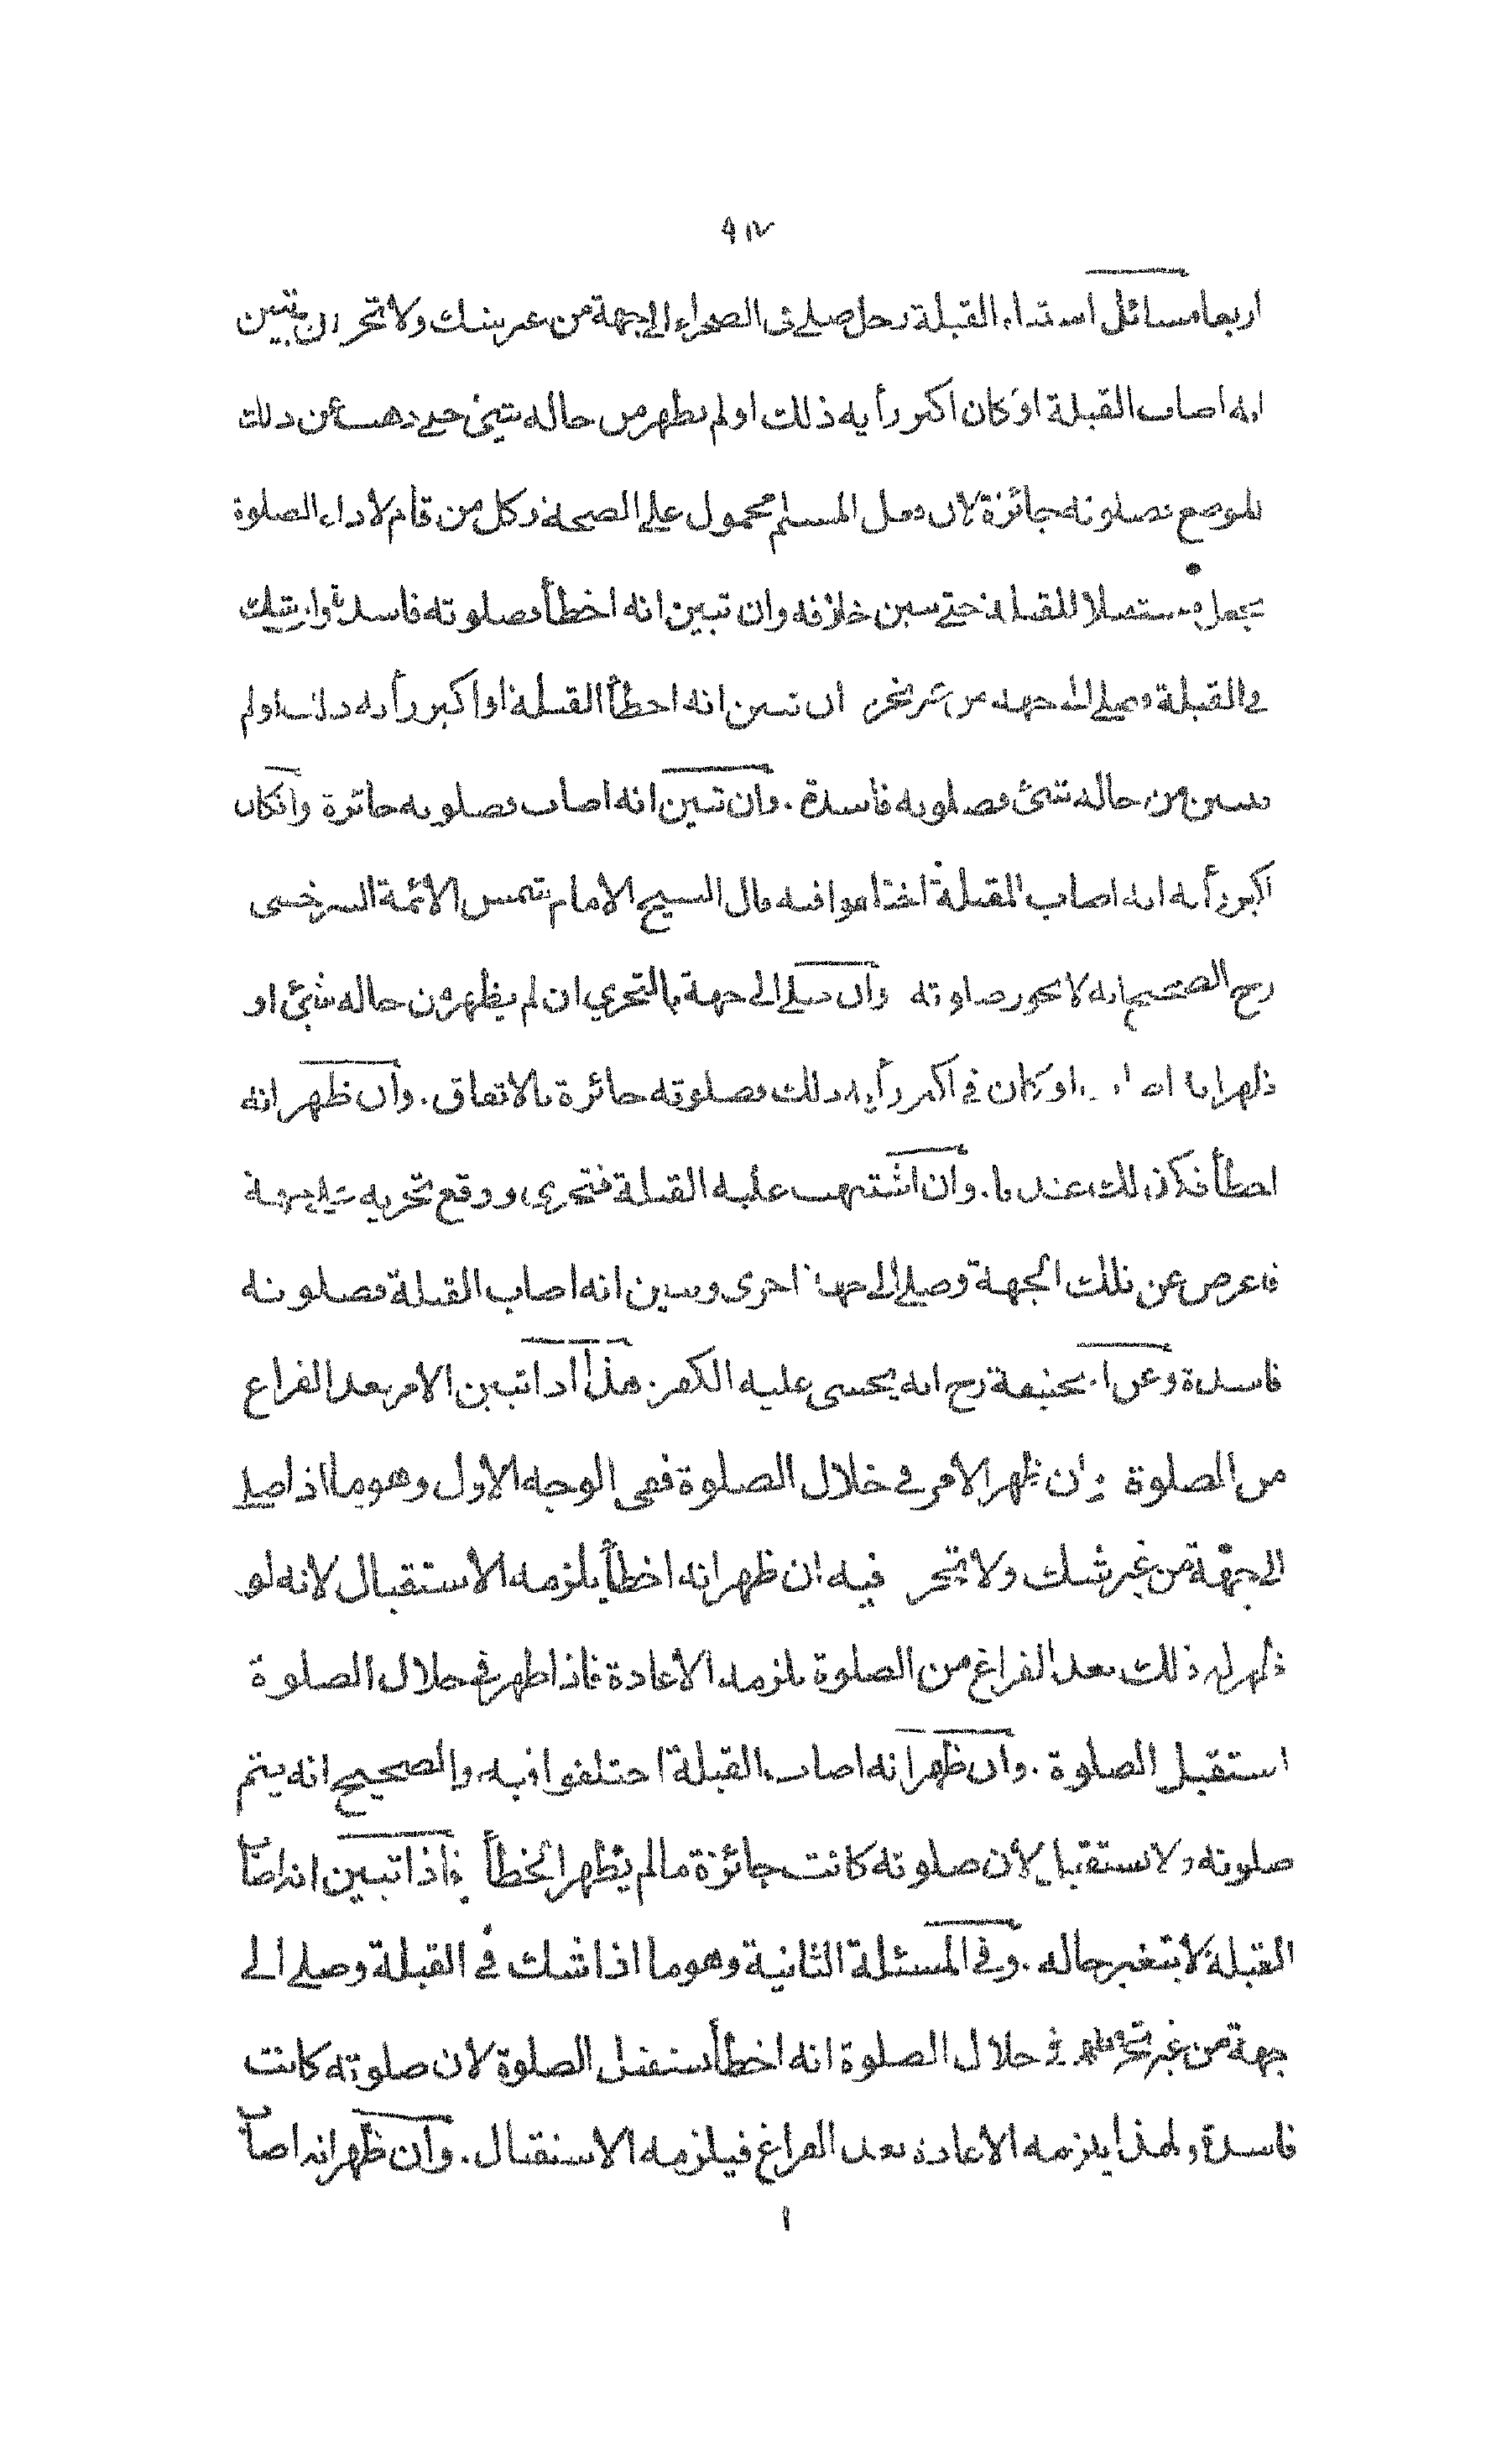 ٩١٧
اربعا مسائل ابتداء القبلة رجل صلى فى الصحراء الى جهة من غير شك ولا تحر ان تبين
انه اصاب القبلة او كان اكبر رأيه ذلك او لم يظهر من حاله شيئ حتى ذهب عن ذلك
الموضع فصلوته جائزة لان فعل المسلم محمول على الصحة وكل من قام لاداء الصلوة
يجعل مستقبلا للقبلة حتى تبين خلافه وان تبين انه اخطأ فصلوته فاسدة وان شك
فى القبلة وصلى الى جهة من غير تحر ان تبين انه اخطأ القبلة او اكبر رأيه ذلك او لم
يتبين من حاله شيئ فصلوته فاسدة . وان تبين انه اصاب فصلوته جائزة وان كان
اكبر رأيه انه اصاب القبلة اختلفوا فيه قال الشيخ الامام شمس الائمة السرخسى
رح الصحيح انه لا يجوز صلوته وان صلى الى جهة بالتحري ان لم يظهر من حاله شيئ او
ظهر انه او كان فى اكبر رأيه ذلك فصلوته جائزة بالاتفاق . وان ظهر انه
اخطأ فكذلك عندنا . وان اشتبهت عليه القبلة فتحرى ووقع تحريه على جهة
فاعرض عن تلك الجهة وصلى الى جهة اخرى وتبين انه اصاب القبلة فصلوته
فاسدة وعن ابى حنيفة رح انه يخشى عليه الكفر . هذا اذا تبين الامر بعد الفراغ
من الصلوة وان ظهر الامر فى خلال الصلوة ففى الوجه الاول وهو ما اذا صلى
الى جهة من غير شك ولا تحر فيه ان ظهر انه اخطأ يلزمه الاستقبال لانه لو
ظهر له ذلك بعد الفراغ من الصلوة يلزمه الاعادة فاذا ظهر فى خلال الصلوة
استقبل الصلوة . وان ظهر انه اصاب القبلة احتلفوا فيه والصحيح انه يتم
صلوته ولا يستقبل لان صلوته كانت جائزة ما لم يظهر الخطأ فاذا تبين انه اصاب
القبلة لا يتغير حاله . وفى المسئلة الثانية وهو ما اذا شك فى القبلة وصلى الى
جهة من غير تحر فظهر فى خلال الصلوة انه اخطأ يستقبل الصلوة لان صلوته كانت
فاسدة ولهذا يلزمه الاعادة بعد الفراغ فيلزمه الاستقبال . وان ظهر انه اصاب
١